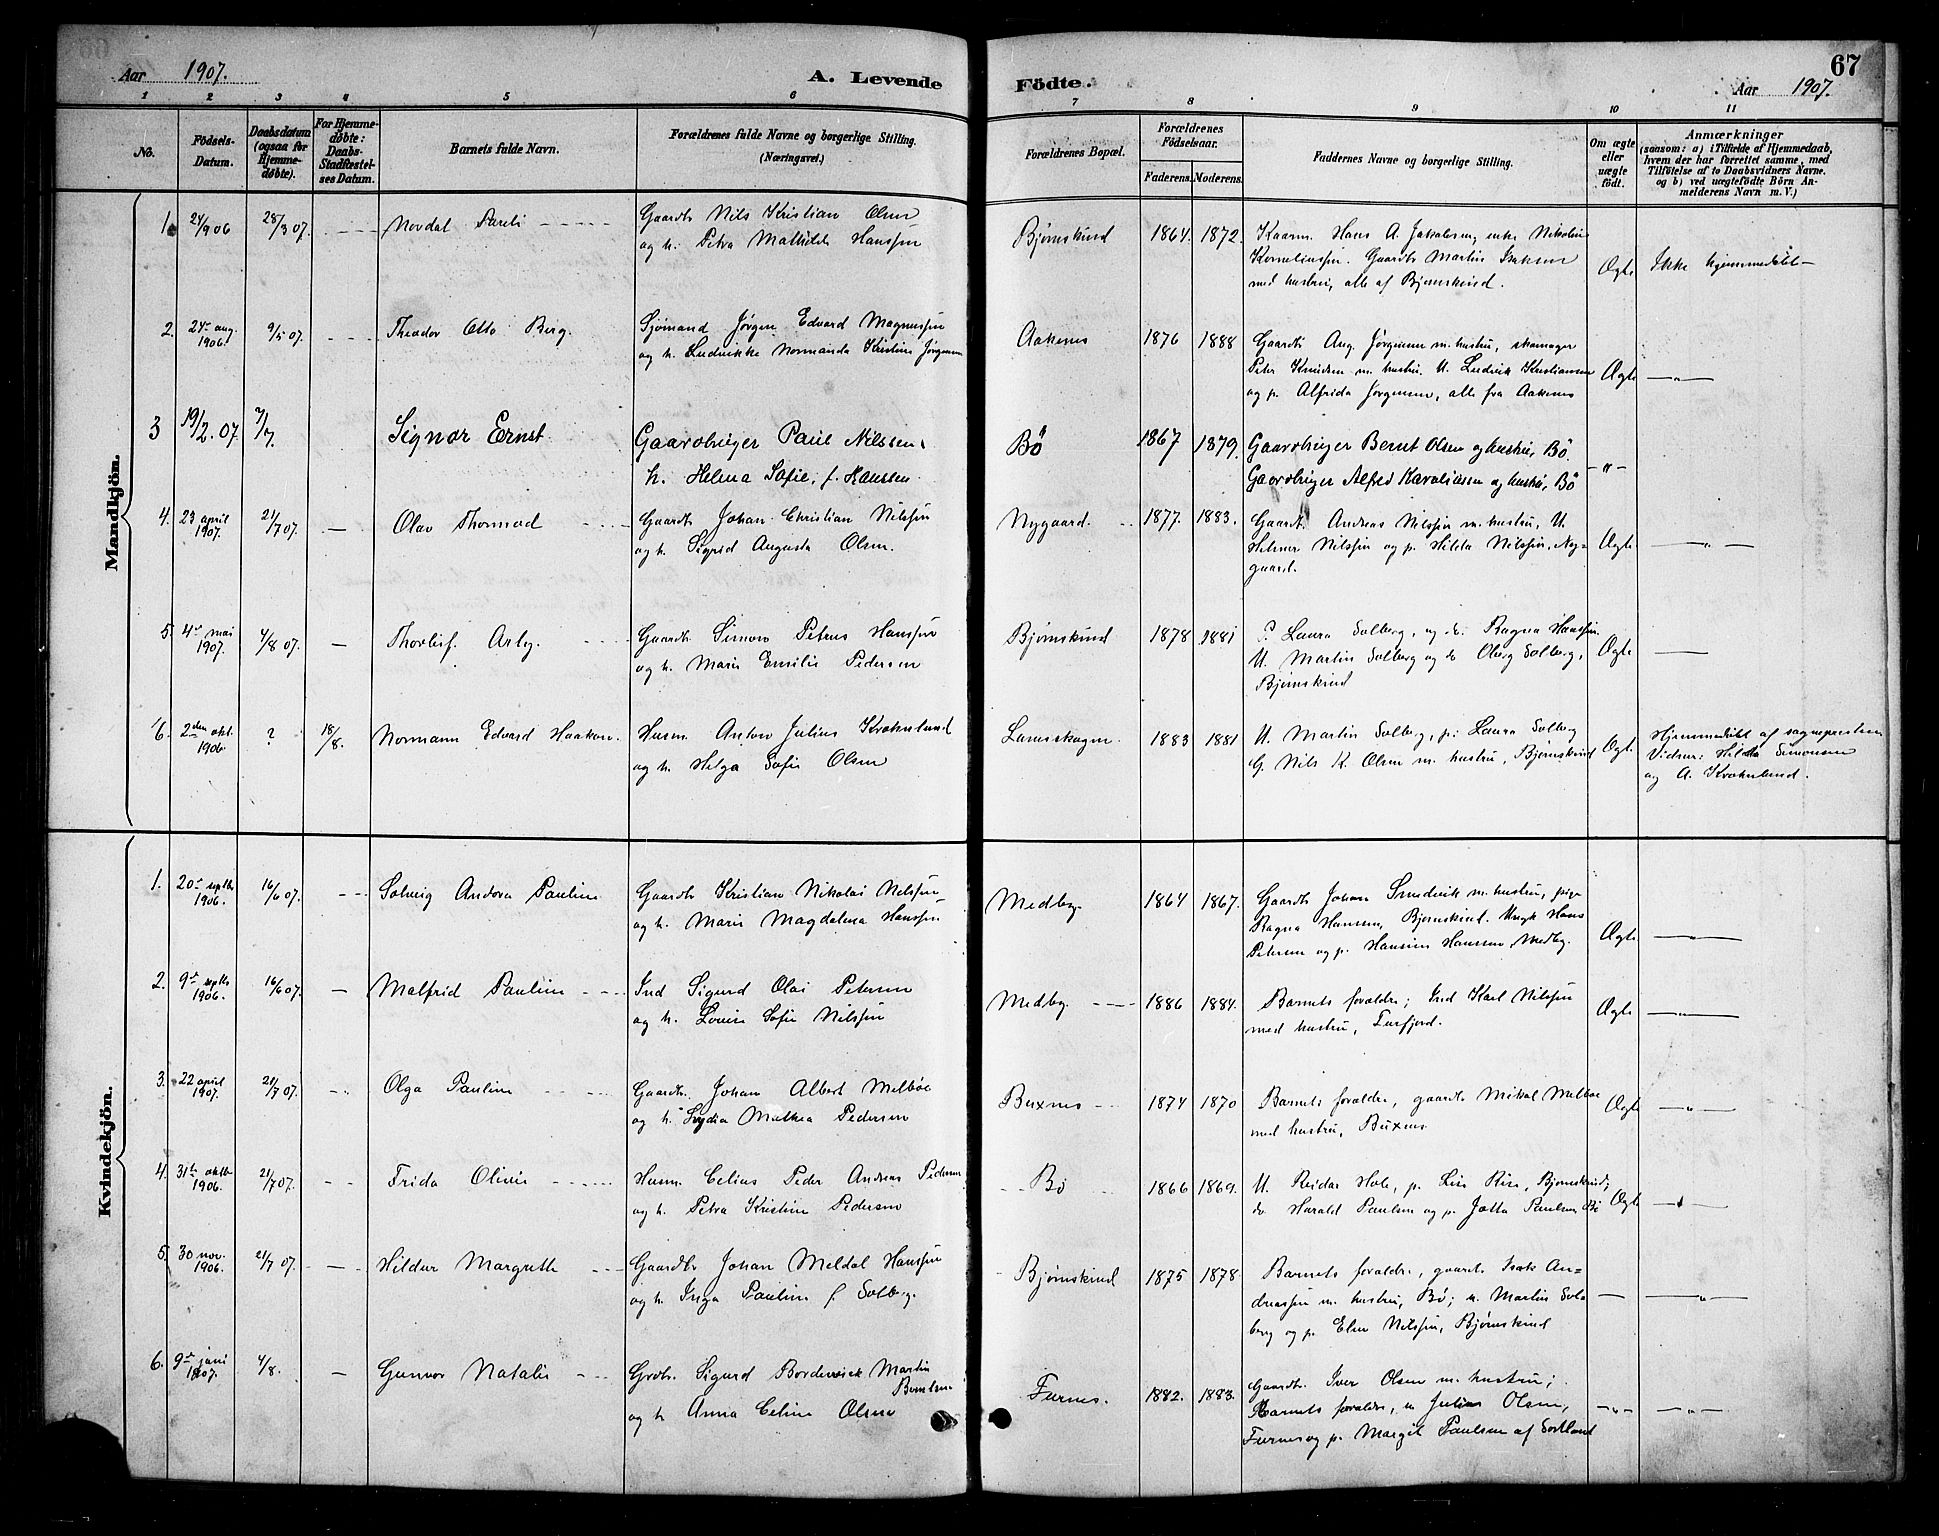 Aar 1907. A. Levende Födte. 67
Aar 1907.
1 2 3 4 5 6 7 8 9 10 11
No.
Födsels-Datum.
Daabsdatum (ogsaa for Hjemme-døbte).
For Hjemme-døbte: Daabs-Stadfæstel-ses Datum.
Barnets fulde Navn.
Forældrenes fulde Navne og borgerlige Stilling.
(Næringsvei.)
Forældrenes Bopæl.
Forældrenes Födselsaar.
Faderens. Moderens.
Faddernes Navne og borgerlige Stilling.
Om ægte eller uægte födt.
Anmærkninger
(saasom: a) i Tilfælde af Hjemmedaab,
hvem der har forrettet samme, med
Tilföielse af to Daabsvidners Navne.
og b) ved uægtefödte Börn An-
melderens Navn m. V.)
Mandkjön.
1. 24/9 06 28/3 07. Nordal Pareli Gaardb. Nils Kristian Olsen
og h. Petra Mathilde Hanssen
Bjørnskind 1864. 1872. Kaarm. Hans A. Jakobsen, enke Nikoline
Korneliussen. Gaardb. Martin Isaksen
med hustru, alle af Bjørnskind.
Ægte Ikke hjemmedöbt
2. 24de aug. 1906. 9/5 07. Theodor Otto Berg. Sjømand Jørgen Edvard Magnussen
og h. Ludvikke Normanda Kristine Jørgensen
Aakenes 1876 1888 Gaardb. Aug. Jørgensen m. hustru, skomager
Peter Knudsen m. hustru. U. Ludvik Kristiansen
og p. Alfrida Jørgensen, alle fra Aakenes
Ægte —„—
3 19/2. 07. 7/7. Signor Ernst. Gaardbruger Paul Nilssen,
h. Helma Sofie, f. Hanssen.
Bö 1867 1879. Gaardbruger Bernt Olsen og hustru, Bö.
Gaardbruger Alfred Karoliussen og hustru, Bö
-„-
4. 23 april 1907. 21/7 07. — Olav Thormod Gaardb. Johan Christian Nilssen
og h. Sigrid Augusta Olsen.
Nygaard. 1877. 1883. Gaardb. Andreas Nilssen m. hustru, U.
Helmer Nilssen og p. Hilda Nilssen, Ny-
gaard.
Ægte —„—
5. 4de mai 1907. 4/8 07. — Thorleif Arly. Gaardb. Simon Petrus Hanssen
og h. Marie Emilie Pedersen
Bjørnskind 1878 1881 P. Laura Solberg, og do. Ragna Hanssen.
U. Martin Solberg og do Oberg Solberg,
Bjørnskind
Ægte ——
6. 2den okt. 1906. ? 18/8. Normann Edvard Haakon. Husm. Anton Julius Krokenlund
og h. Helga Sofie Olsen
Lamskogen 1883 1881 U. Martin Solberg, p. Laura Solberg
G. Nils K. Olsen m. hustru, Bjørnskind
Ægte. Hjemmedöbt af sognepresten
Vidner: Hilda Simonsen
og A. Krokenlund.
Kvindekjön.
1. 20de septbr 1906. 16/6 07. Solveig Andora Pauline Gaardb. Kristian Nikolai Nilssen
og h. Marie Magdalena Hanssen
Medby. 1864 1867. Gaardb. Johan Smedvik m. hustru, pige
Ragna Hanssen, Bjørnskind. Ungk Hans
Petersen og p. Hansine Hanssen, Medby.
Ægte —„—
2. 9de septbr 1906. 16/6 07. — Malfrid Pauline Ind Sigurd Olai Petersen
og h. Louise Sofie Nilssen
Medby. 1886 1884. Barnets foraldre; Ind Karl Nilssen
med hustru, Furfjord.
Ægte —„—
3. 22 april 1907. 21/7 07. Olga Pauline Gaardb. Johan Albert Melböe
og h. Lydia Mathea Pedersen
Buxnes 1874 1870 Barnets foraldre, gaardb. Mikal Melböe
med hustru, Buxnes
Ægte —„—
4. 31te oktbr 1906. 21/7 07. Frida Olivie Husm. Celius Peder Andreas Pedersen
og h. Petra Kristine Pedersen
Bö 1866 1869. U. Reidar Hole, p. Lise Riise, Bjørnskind,
do Harald Paulsen og p. Jotta Paulsen Bö
Ægte —„—
5. 30 nov. 1906. 21/7 07. — Hildur Margrethe Gaardb. Johan Meldal Hanssen
og h. Inga Pauline f. Solberg.
Bjørnskind 1875 1878 Barnets foraldre, gaardb. Isak An-
dreassen m. hustru, Bö; u. Martin Sol-
berg og p. Elen Nilssen, Bjørnskind
— —„—
6. 9de juni 1907. 4/8. — Gunvor Natalie Grdbr. Sigurd Bordewick Martin
Berntsen
og h Anna Celine Olsen
Furnes. 1882. 1883. Gaardb. Iver Olsen m. hustru;
Barnets foraldre, u Julius Olsen,
Furnes og p. Margit Paulsen af Sortland
-„- —„—